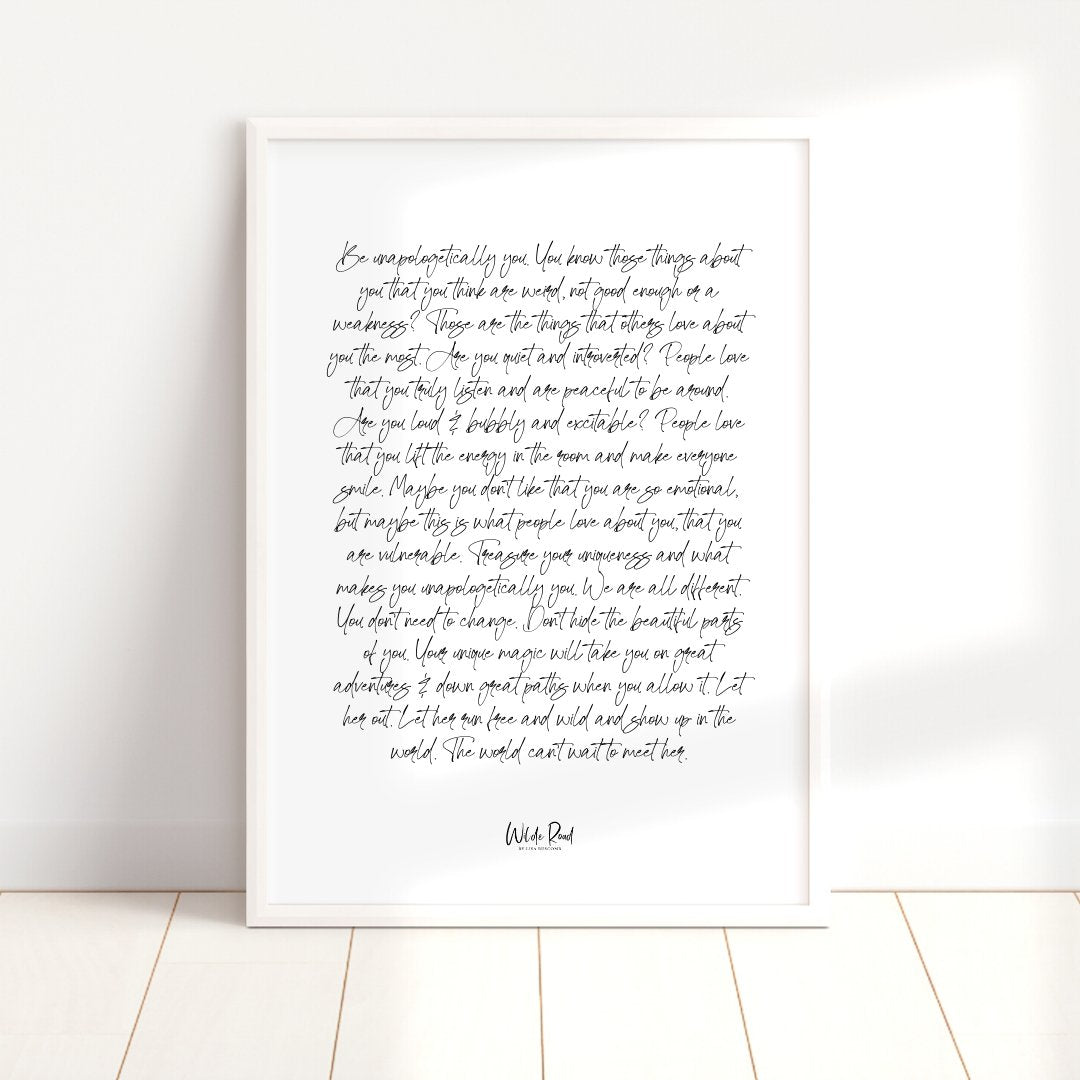 Be unapologetically you. You know those things about
you that you think are weird, not good enough or a
weakness? Those are the things that others love about
you the most. Are you quiet and introverted? People love
that you truly listen and are peaceful to be around.
Are you loud & bubbly and excitable? People love
that you lift the energy in the room and make everyone
smile. Maybe you don't like that you are so emotional,
but maybe this is what people love about you, that you
are vulnerable. Treasure your uniqueness and what
makes you unapologetically you. We are all different.
You don't need to change. Don't hide the beautiful parts
of you. Your unique magic will take you on great
adventures & down great paths when you allow it. Let
her out. Let her run free and wild and show up in the
world. The world can't wait to meet her.
Wilde Road
BY LISA